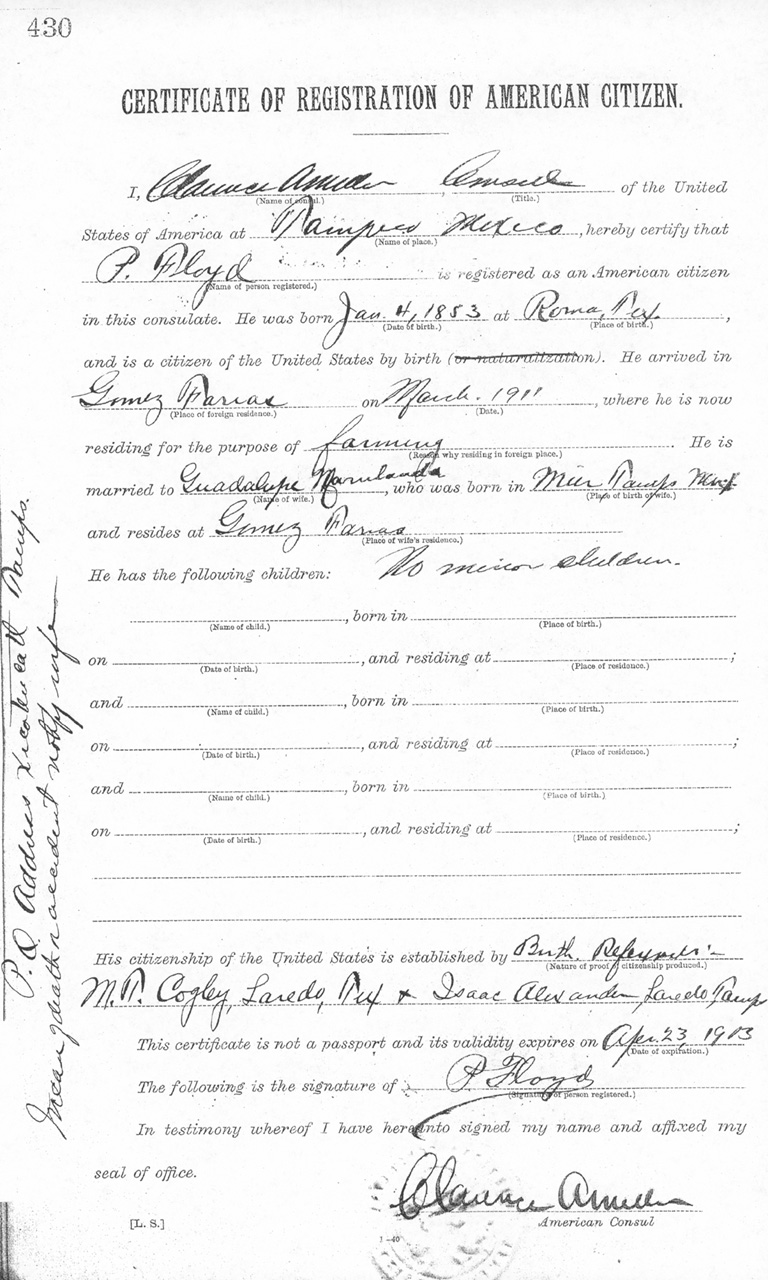 430
CERTIFICATE OF REGISTRATION OF AMERICAN CITIZEN.
I, Clarence , Consul of the United
(Name of consul.) (Title.)
States of America at Tampico Mexico, hereby certify that
(Name of place.)
P. Floyd is registered as an American citizen
(Name of person registered.)
in this consulate. He was born Jan. 4, 1853 at Roma, Tex.,
(Date of birth.) (Place of birth.)
and is a citizen of the United States by birth (or naturalization). He arrived in
Gomez Farias on March. 1911, where he is now
(Place of foreign residence.) (Date.)
residing for the purpose of farming. He is
(Reason why residing in foreign place.)
married to Guadalupe , who was born in Mier Tamps Mex
(Name of wife.) (Place of birth of wife.)
and resides at Gomez Farias
(Place of wife's residence.)
He has the following children: No minor children.
, born in
(Name of child.) (Place of birth.)
on , and residing at ;
(Date of birth.) (Place of residence.)
and , born in
(Name of child.) (Place of birth.)
on , and residing at ;
(Date of birth.) (Place of residence.)
and , born in
(Name of child.) (Place of birth.)
on , and residing at ;
(Date of birth.) (Place of residence.)
His citizenship of the United States is established by Birth. References:-
(Nature of proof of citizenship produced.)
M.T. Cogley, Laredo, Tex & Isaac Alexander, Laredo Tamp
This certificate is not a passport and its validity expires on Apr. 23, 1913
(Date of expiration.)
The following is the signature of P Floyd
(Signature of person registered.)
In testimony whereof I have hereunto signed my name and affixed my
seal of office.
Clarence
[L. S.] American Consul
1—40
P.O. Address Xicotencatl Tamps.
In case of death or accident notify wife